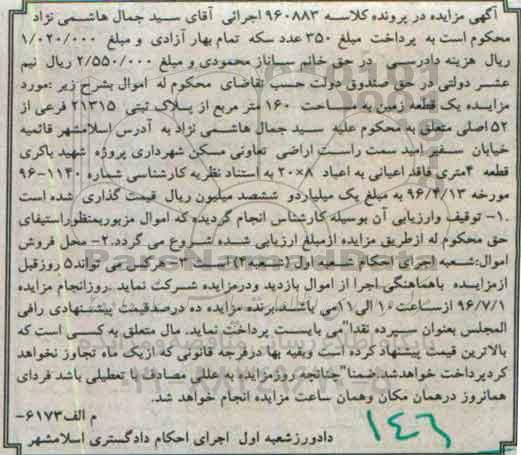 آگهی مزایده در پرونده کلاسه ۹۶۰۸۸۳ اجرائی آقای سید جمال هاشمی نژاد
محکوم است به پرداخت مبلغ ۳۵۰ عدد سکه تمام بهار آزادی و مبلغ ۱/۰۲۰/۰۰۰
ریال هزینه دادرسی در حق خانم ساناز محمودی و مبلغ ۲/۵۵۰/۰۰۰ ریال نیم
عشر دولتی در حق صندوق دولت حسب تقاضای محکوم له اموال بشرح زیر :مورد
مزایده یک قطعه زمین به مساحت ۱۶۰ متر مربع از پلاک ثبتی ۲۱۳۱۵ فرعی از
۵۲ اصلی متعلق به محکوم علیه سید جمال هاشمی نژاد به آدرس اسلامشهر قائمیه
خیابان سفیر امید سمت راست اراضی تعاونی مسکن شهرداری پروژه شهید باکری
قطعه ۴متری فاقد اعیانی به اعباد ۸×۲۰ به استناد نظریه کارشناسی شماره ۱۱۴۰-۹۶
مورخه ۹۶/۴/۱۳ به مبلغ یک میلیاردو ششصد میلیون ریال قیمت گذاری شده است
.۱- توقیف وارزیابی آن بوسیله کارشناس انجام گردیده که اموال مزبوربمنظوراستیفای
حق محکوم له ازطریق مزایده ازمبلغ ارزیابی شده شروع می گردد.۲- محل فروش
اموال:شعبه اجرای احکام شعبه اول (شعبه۲) است ۳- هرکس می تواند۵ روزقبل
ازمزایده باهماهنگی اجرا از اموال بازدید ودرمزایده شرکت نماید .روزانجام مزایده
۹۶/۷/۱ ازساعت ۱۰ الی۱۱می باشد.برنده مزایده ده درصدقیمت پیشنهادی رافی
المجلس بعنوان سپرده نقدا"می بایست پرداخت نماید. مال متعلق به کسی است که
بالاترین قیمت پیشنهاد کرده است وبقیه بها درفرجه قانونی که ازیک ماه تجاوز نخواهد
کردپرداخت خواهدشد.ضمنا"چنانچه روزمزایده به عللی مصادف با تعطیلی باشد فردای
همانروز درهمان مکان وهمان ساعت مزایده انجام خواهد شد.
م الف۶۱۷۳-
دادورزشعبه اول اجرای احکام دادگستری اسلامشهر
۱۴۶